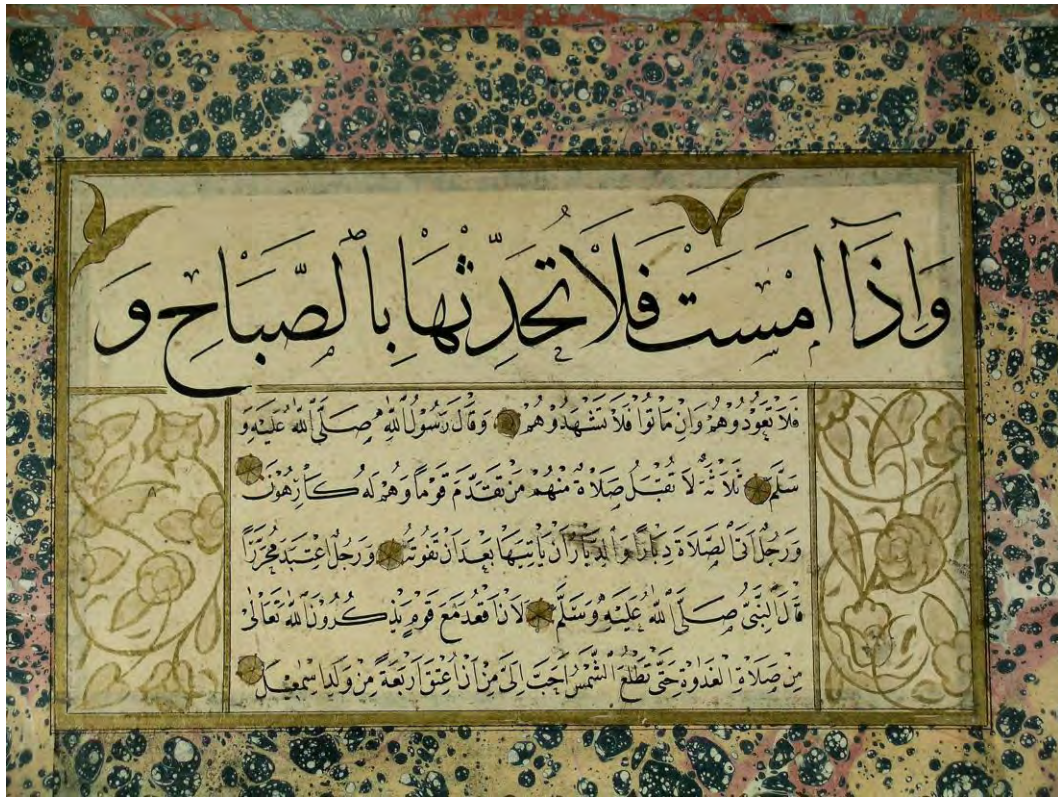 وَاِذَآ اَمْسَتْ فَلَا تُحَدِّثْهَا بِالصَّبَاحِ وَ
فَلَا تَعُودُوهُمْ وَاِنْ مَاتُوا فَلَا تَشْهَدُوهُمْ وَقَالَ رَسُولُ اللّٰهِ صَلَّى اللّٰهُ عَلَيْهِ وَ
سَلَّمَ ثَلَاثَةٌ لَا تُقْبَلُ صَلَاةٌ مِنْهُمْ مَنْ تَقَدَّمَ قَوْمًا وَهُمْ لَهُ كَارِهُونَ
وَرَجُلٌ اَتَى الصَّلَاةَ دِبَارًا وَالدِّبَارُ اَنْ يَأْتِيَهَا بَعْدَ اَنْ تَفُوتَهُ وَرَجُلٌ اعْتَبَدَ مُحَرَّرًا
قَالَ النَّبِيُّ صَلَّى اللّٰهُ عَلَيْهِ وَسَلَّمَ لَاَنْ اَقْعُدَ مَعَ قَوْمٍ يَذْكُرُونَ اللّٰهَ تَعَالٰى
مِنْ صَلَاةِ الْغَدٰوةِ حَتّٰى تَطْلُعَ الشَّمْسُ اَحَبُّ اِلَيَّ مِنْ اَنْ اُعْتِقَ اَرْبَعَةً مِنْ وَلَدِ اِسْمٰعِيلَ